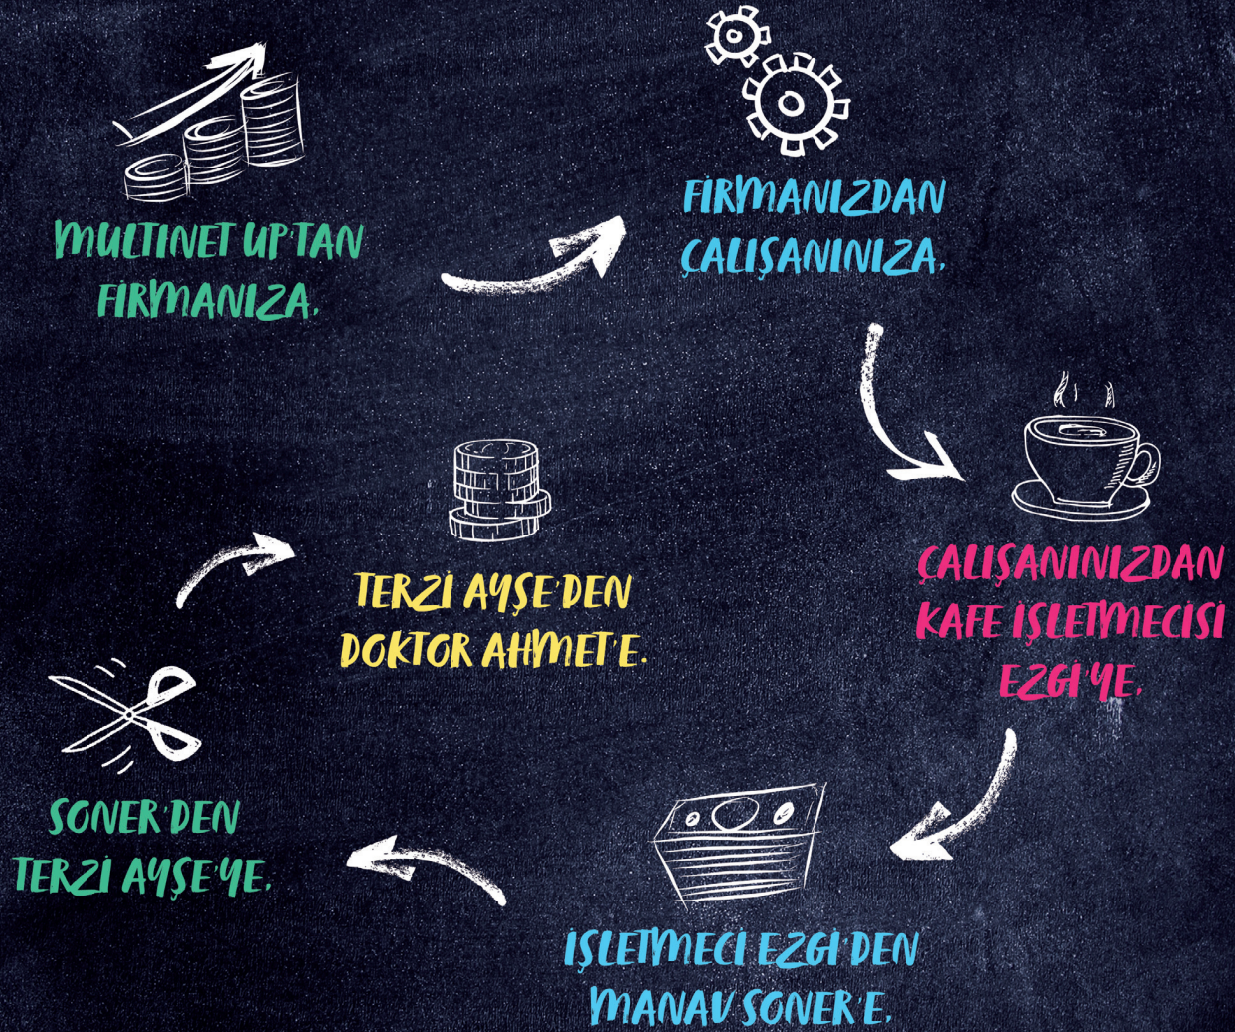 MULTINET UP'TAN
FİRMANIZA,
FİRMANIZDAN
ÇALIŞANINIZA,
ÇALIŞANINIZDAN
KAFE İŞLETMECİSİ
EZGİ'YE,
İŞLETMECİ EZGİ'DEN
MANAV SONER'E,
SONER'DEN
TERZİ AYŞE'YE,
TERZİ AYŞE'DEN
DOKTOR AHMET'E.